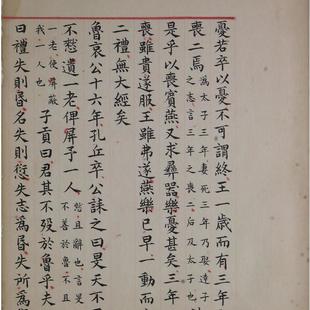 憂若卒以憂不可謂終王一歲而有三年
喪二焉為太子三年妻死三年乃娶達子之志言三年之喪二后及太子也
是乎以喪賓燕又求彝器樂憂甚矣三年
喪雖貴遂服王雖弗遂燕樂已早一動而
二禮無大經矣
魯哀公十六年孔丘卒公誄之曰旻天不
不憖遺一老俾屏予一人憖且辭也言旻不善於魯不且
一老使屏蔽我一人也子貢曰君其不歿於魯乎夫
曰禮失則昏名失則愆失志為昏失所為